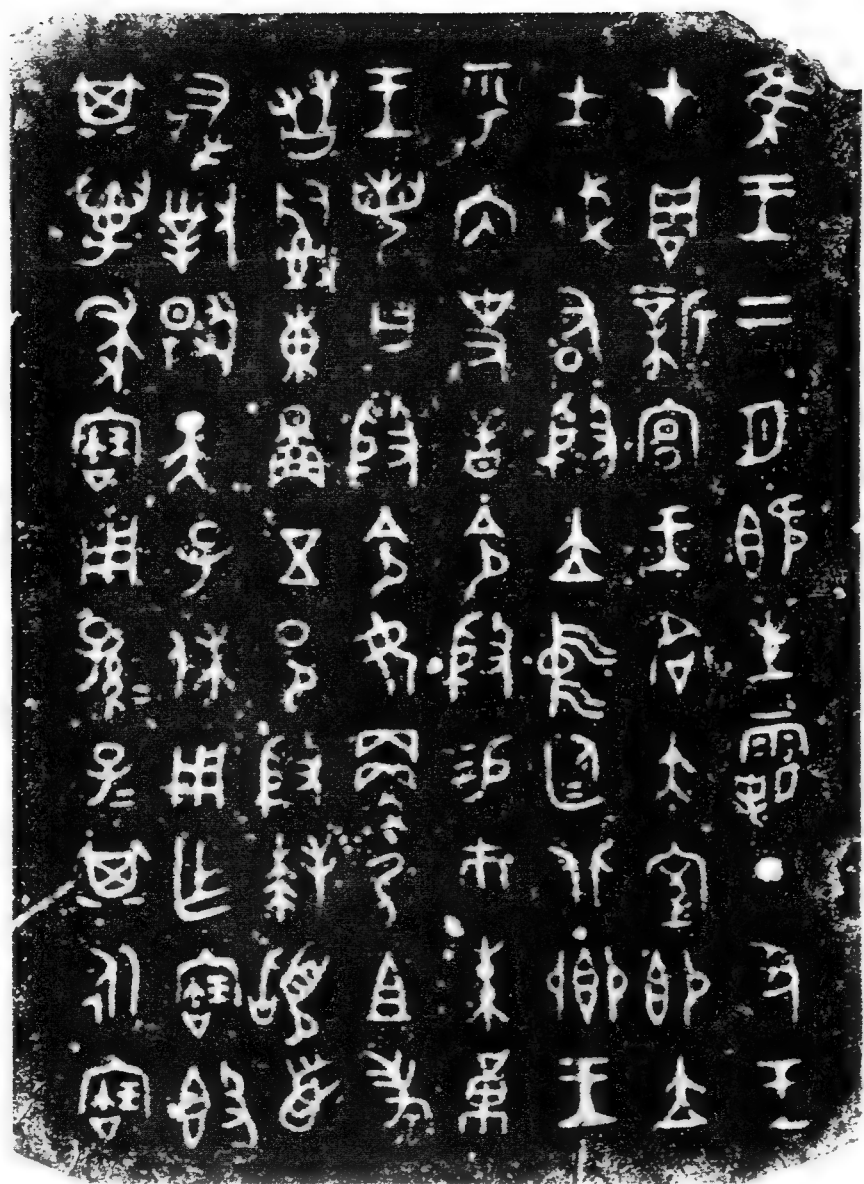 隹王二月既生霸丁丑王
才周新宮王各大室即立
士戍右殷立中廷北鄉王
乎內史音令殷易市朱黃
王若曰殷令女更乃且考
友司東啚五邑殷拜𩒨首
敢對揚天子休用乍寶𣪘
其萬年寶用孫=子=其永寶